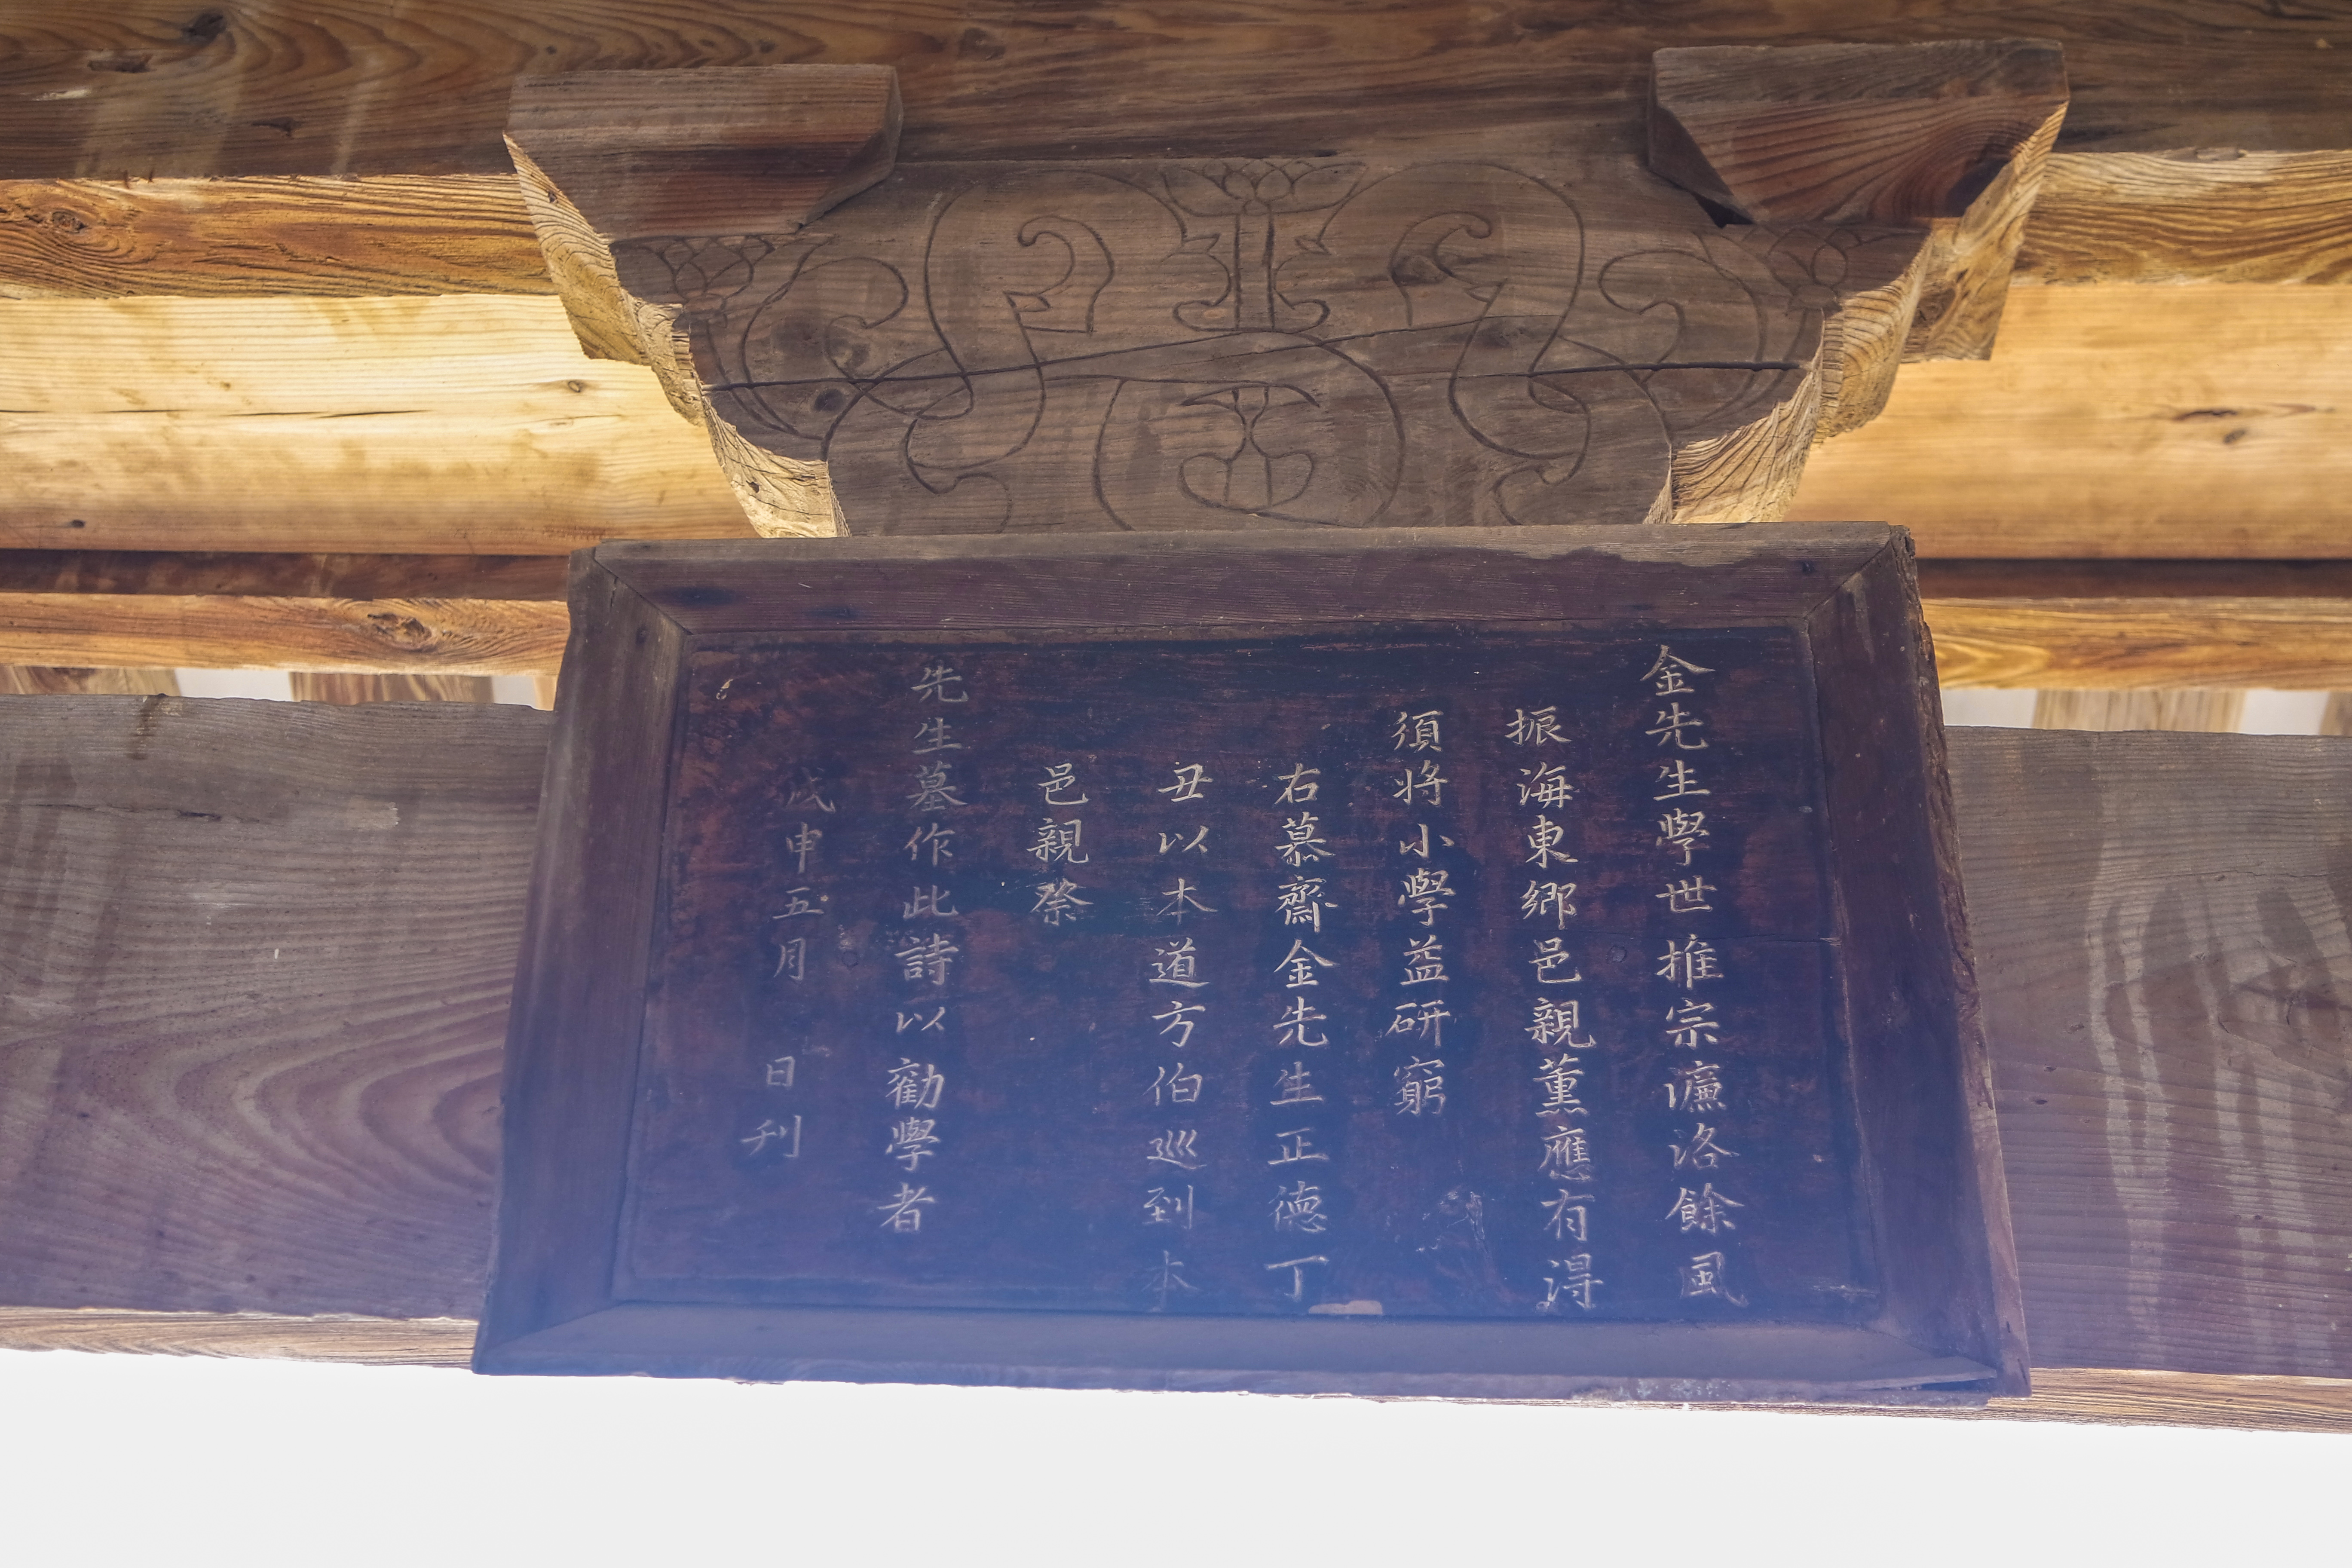 金先生學世推宗濂洛餘風
振海東鄉邑親薰應有淂
須將小學益硏窮
右慕齋金先生正德丁
丑以本道方伯巡到本
邑親祭
先生墓作此詩以勸學者
戊申五月　日刋